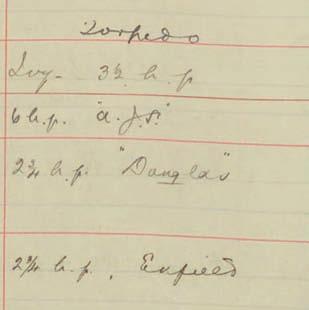 Torpedo
Ivy - 3½ h.p
6 h.p. "A.J.S."
2¾ h.p. "Douglas"
2¾ h.p. Enfield